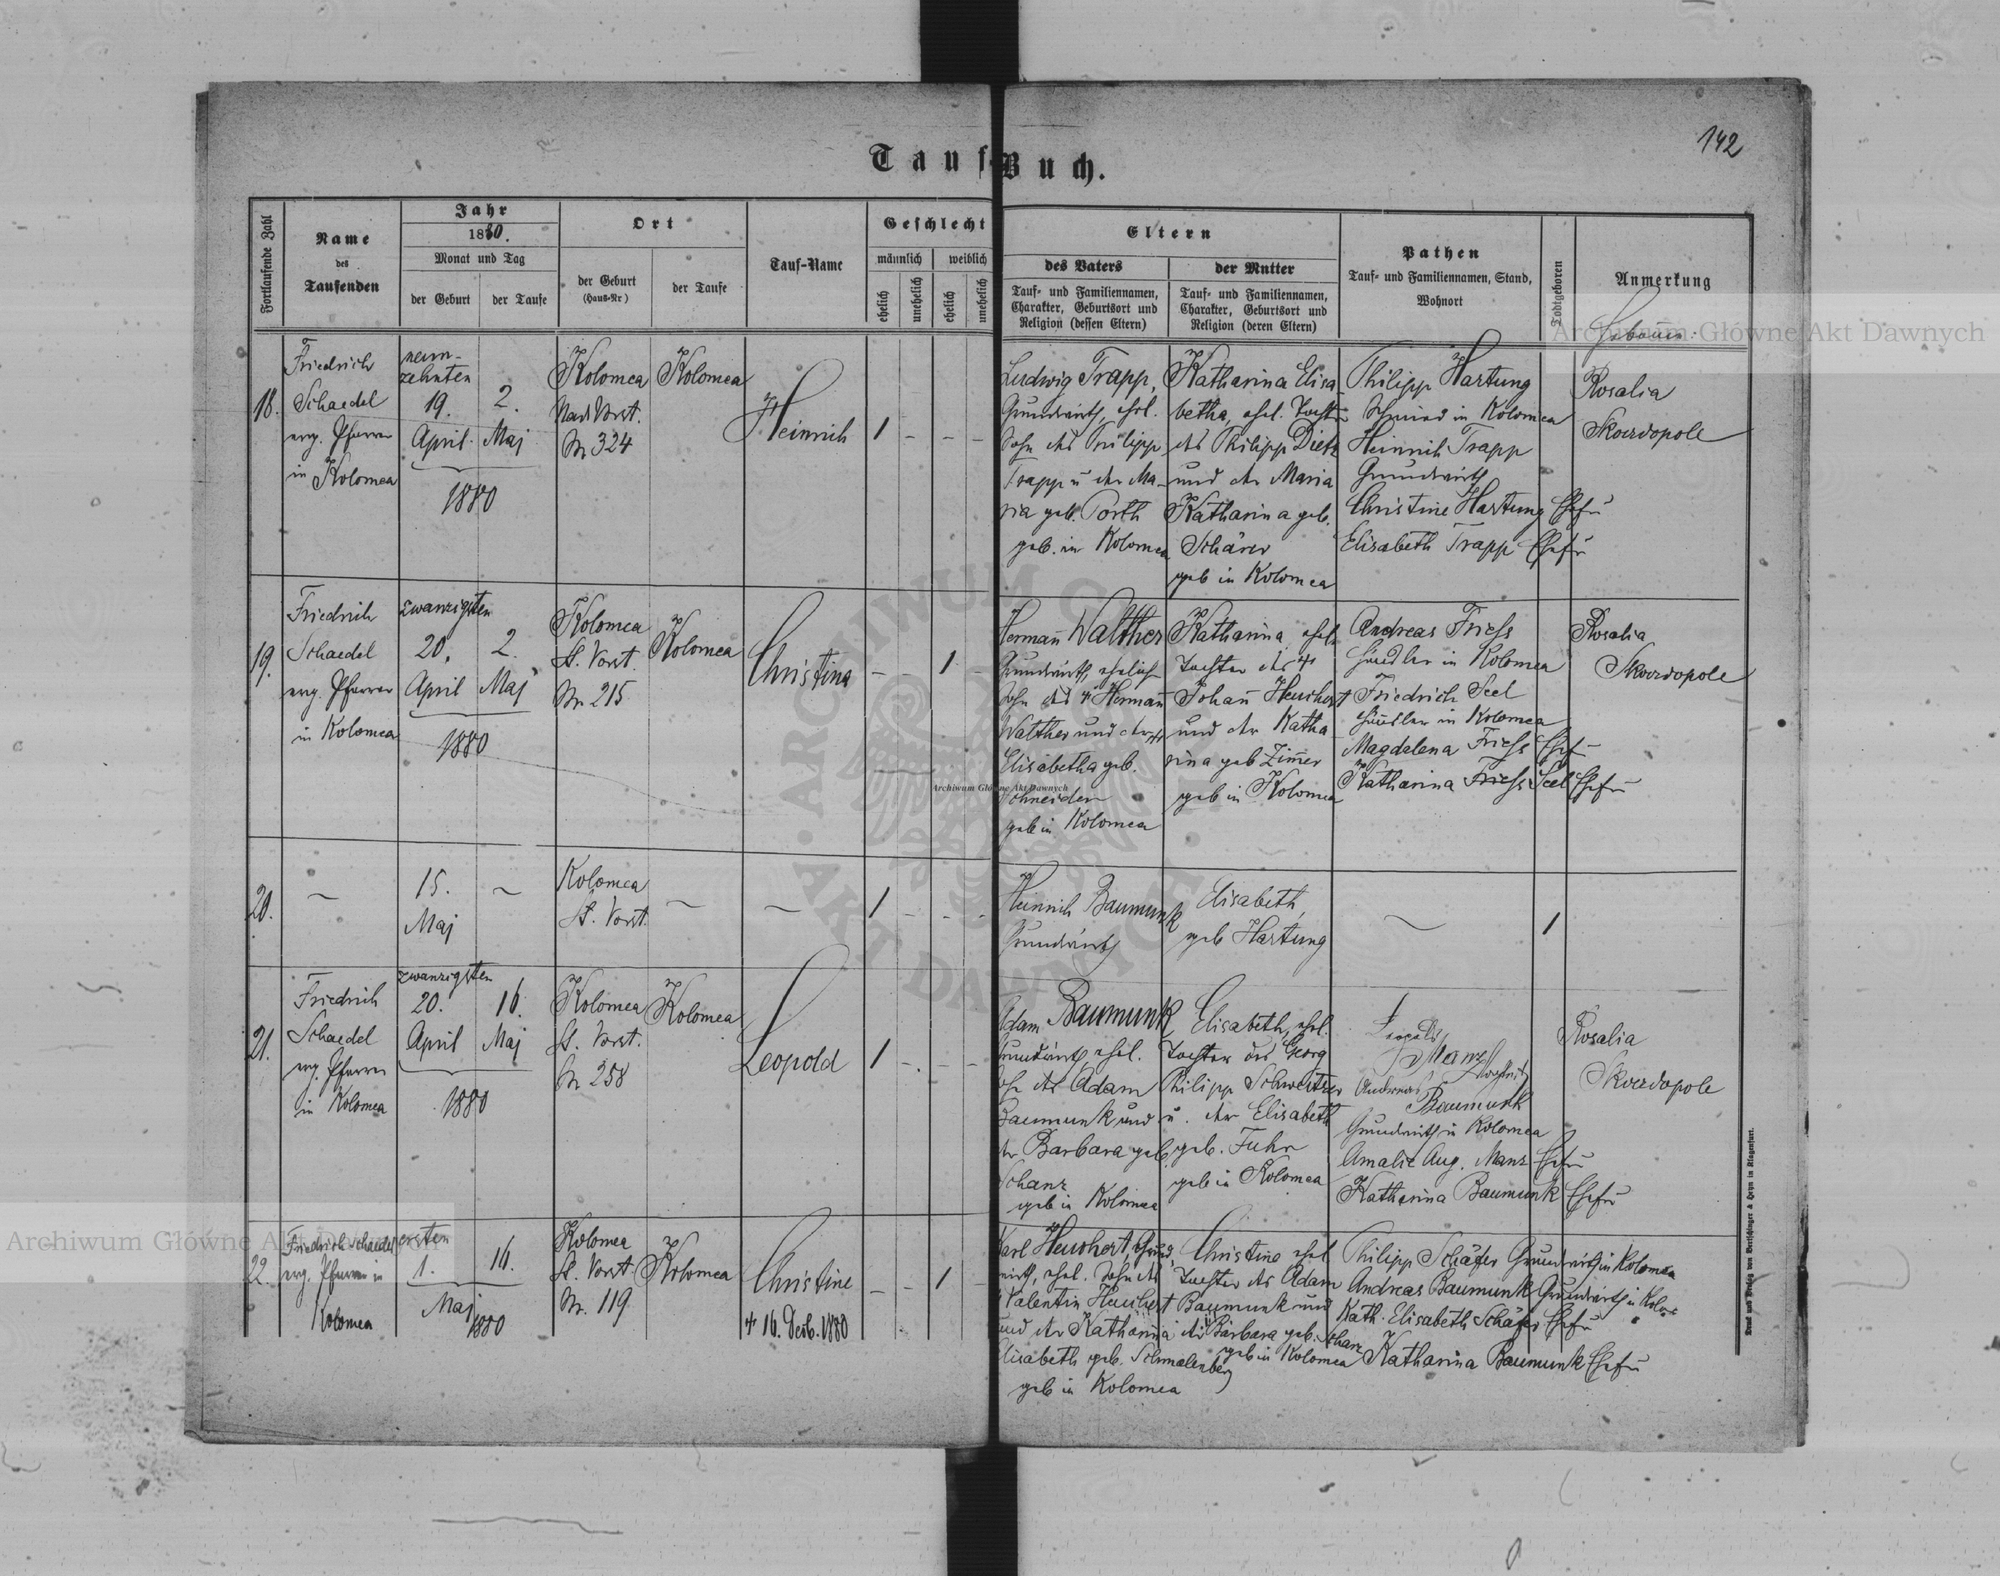 142
Tauf-Buch.
Fortlaufende Zahl
Name
des
Taufenden
Jahr
1880.
Monat und Tag
der Geburt
der Taufe
Ort
der Geburt
(Haus-Nr)
der Taufe
Tauf-Name
Geschlecht
männlich
weiblich
ehelich
unehelich
ehelich
unehelich
Eltern
des Vaters
Tauf- und Familiennamen,
Charakter, Geburtsort und
Religion (dessen Eltern)
der Mutter
Tauf- und Familiennamen,
Charakter, Geburtsort und
Religion (deren Eltern)
Pathen
Tauf- und Familiennamen, Stand,
Wohnort
Todtgeboren
Anmerkung
18.
Friedrich
Schaedel
evg. Pfarrer
in Kolomea
neun-
zehnten
19.
April
2.
Maj
1880
Kolomea
Vorst.
Nr 324
Kolomea
Heinrich
1 - - -
Ludwig Trapp,
Grundwirth, ehel.
Sohn des Philipp
Trapp u der Ma-
ria geb. Porth
geb. in Kolomea
Katharina Elisa
betha, ehel. Tochter
des Philipp Dietz
und der Maria
Katharina geb.
Schärer
geb in Kolomea
Philipp Hartung
Schmied in Kolomea
Heinrich Trapp
Grundwirth
Christine Hartung Ehefr
Elisabeth Trapp Ehefr
Rosalia
Skordopole
19.
Friedrich
Schaedel
evg. Pfarrer
in Kolomea
zwanzigsten
20.
April
2.
Maj
1880
Kolomea
St. Vorst.
Nr 215
Kolomea
Christina
- - 1 -
Hermañ Walther
Grundwirth, ehelich
Sohn des + Hermañ
Walther und der
Elisabetha geb.
Schneider
geb in Kolomea
Katharina, ehel.
Tochter des +
Johañ Heuchert
und der Katha
rina geb Zim̄er
geb in Kolomea
Andreas Friess
Händler in Kolomea
Friedrich Seel
Händler in Kolomea
Magdalena Friess Ehef
Katharina Friess Seel Ehefr
Rosalia
Skordopole
20.
15.
Maj
Kolomea
St. Vorst.
1 - - -
Heinrich Baumunk
Grundwirth
Elisabeth,
geb Hartung
1
21.
Friedrich
Schaedel
evg. Pfarrer
in Kolomea
zwanzigsten
20.
April
16.
Maj
1880
Kolomea
St. Vorst.
Nr 258
Kolomea
Leopold
1 - - -
Adam Baumunk
Grundwirth ehel.
Sohn des Adam
Baumunk und
der Barbara geb
Schanz
geb in Kolomea
Elisabeth, ehel.
Tochter des Georg
Philipp Schweitzer
u. der Elisabeth
geb. Fuhr
geb in Kolomea
Leopold
Manz
Andreas
Baumunk
Grundwirth in Kolomea
Amalie Aug. Manz Ehefr
Katharina Baumunk Ehefr
Rosalia
Skordopole
22.
Friedrich Schaedel
evg. Pfarrer in
Kolomea
ersten
1.
16.
Maj
1880
Kolomea
St. Vorst
Nr. 119
Kolomea
Christine
+ 16. Decb. 1880
- - 1 -
Karl Heuchert, Grund
wirth, ehel. Sohn des
Valentin Heuchert
und der Katharina
Elisabeth geb. Schmalenberg
geb in Kolomea
Christine ehel
Tochter des Adam
Baumunk und
der Barbara geb. Schanz
geb in Kolomea
Philipp Schäfer Grundwirth in Kolomea
Andreas Baumunk Grundwirth in Kolom
Kath. Elisabeth Schäfer Ehefr
Katharina Baumunk Ehefr
Druck und Verlag von Bertschinger & Heyn in Klagenfurt.
Archiwum Główne Akt Dawnych
Archiwum Główne Akt Dawnych
Archiwum Główne Akt Dawnych
ARCHIWUM GŁÓWNE AKT DAWNYCH